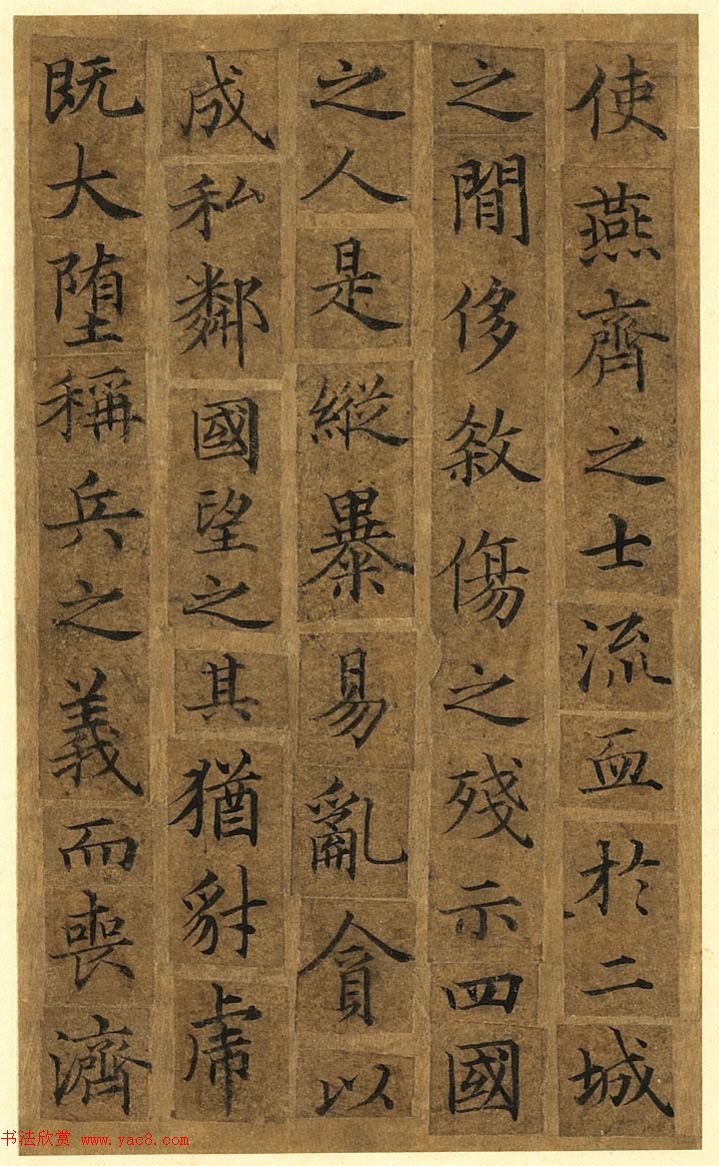 使燕齊之士流血於二城
之間侈敘傷之殘示四國
之人是縱暴易亂貪以
成私鄰國望之其猶豺虎
既大墮稱兵之義而喪濟
书法欣赏 www.yac8.com